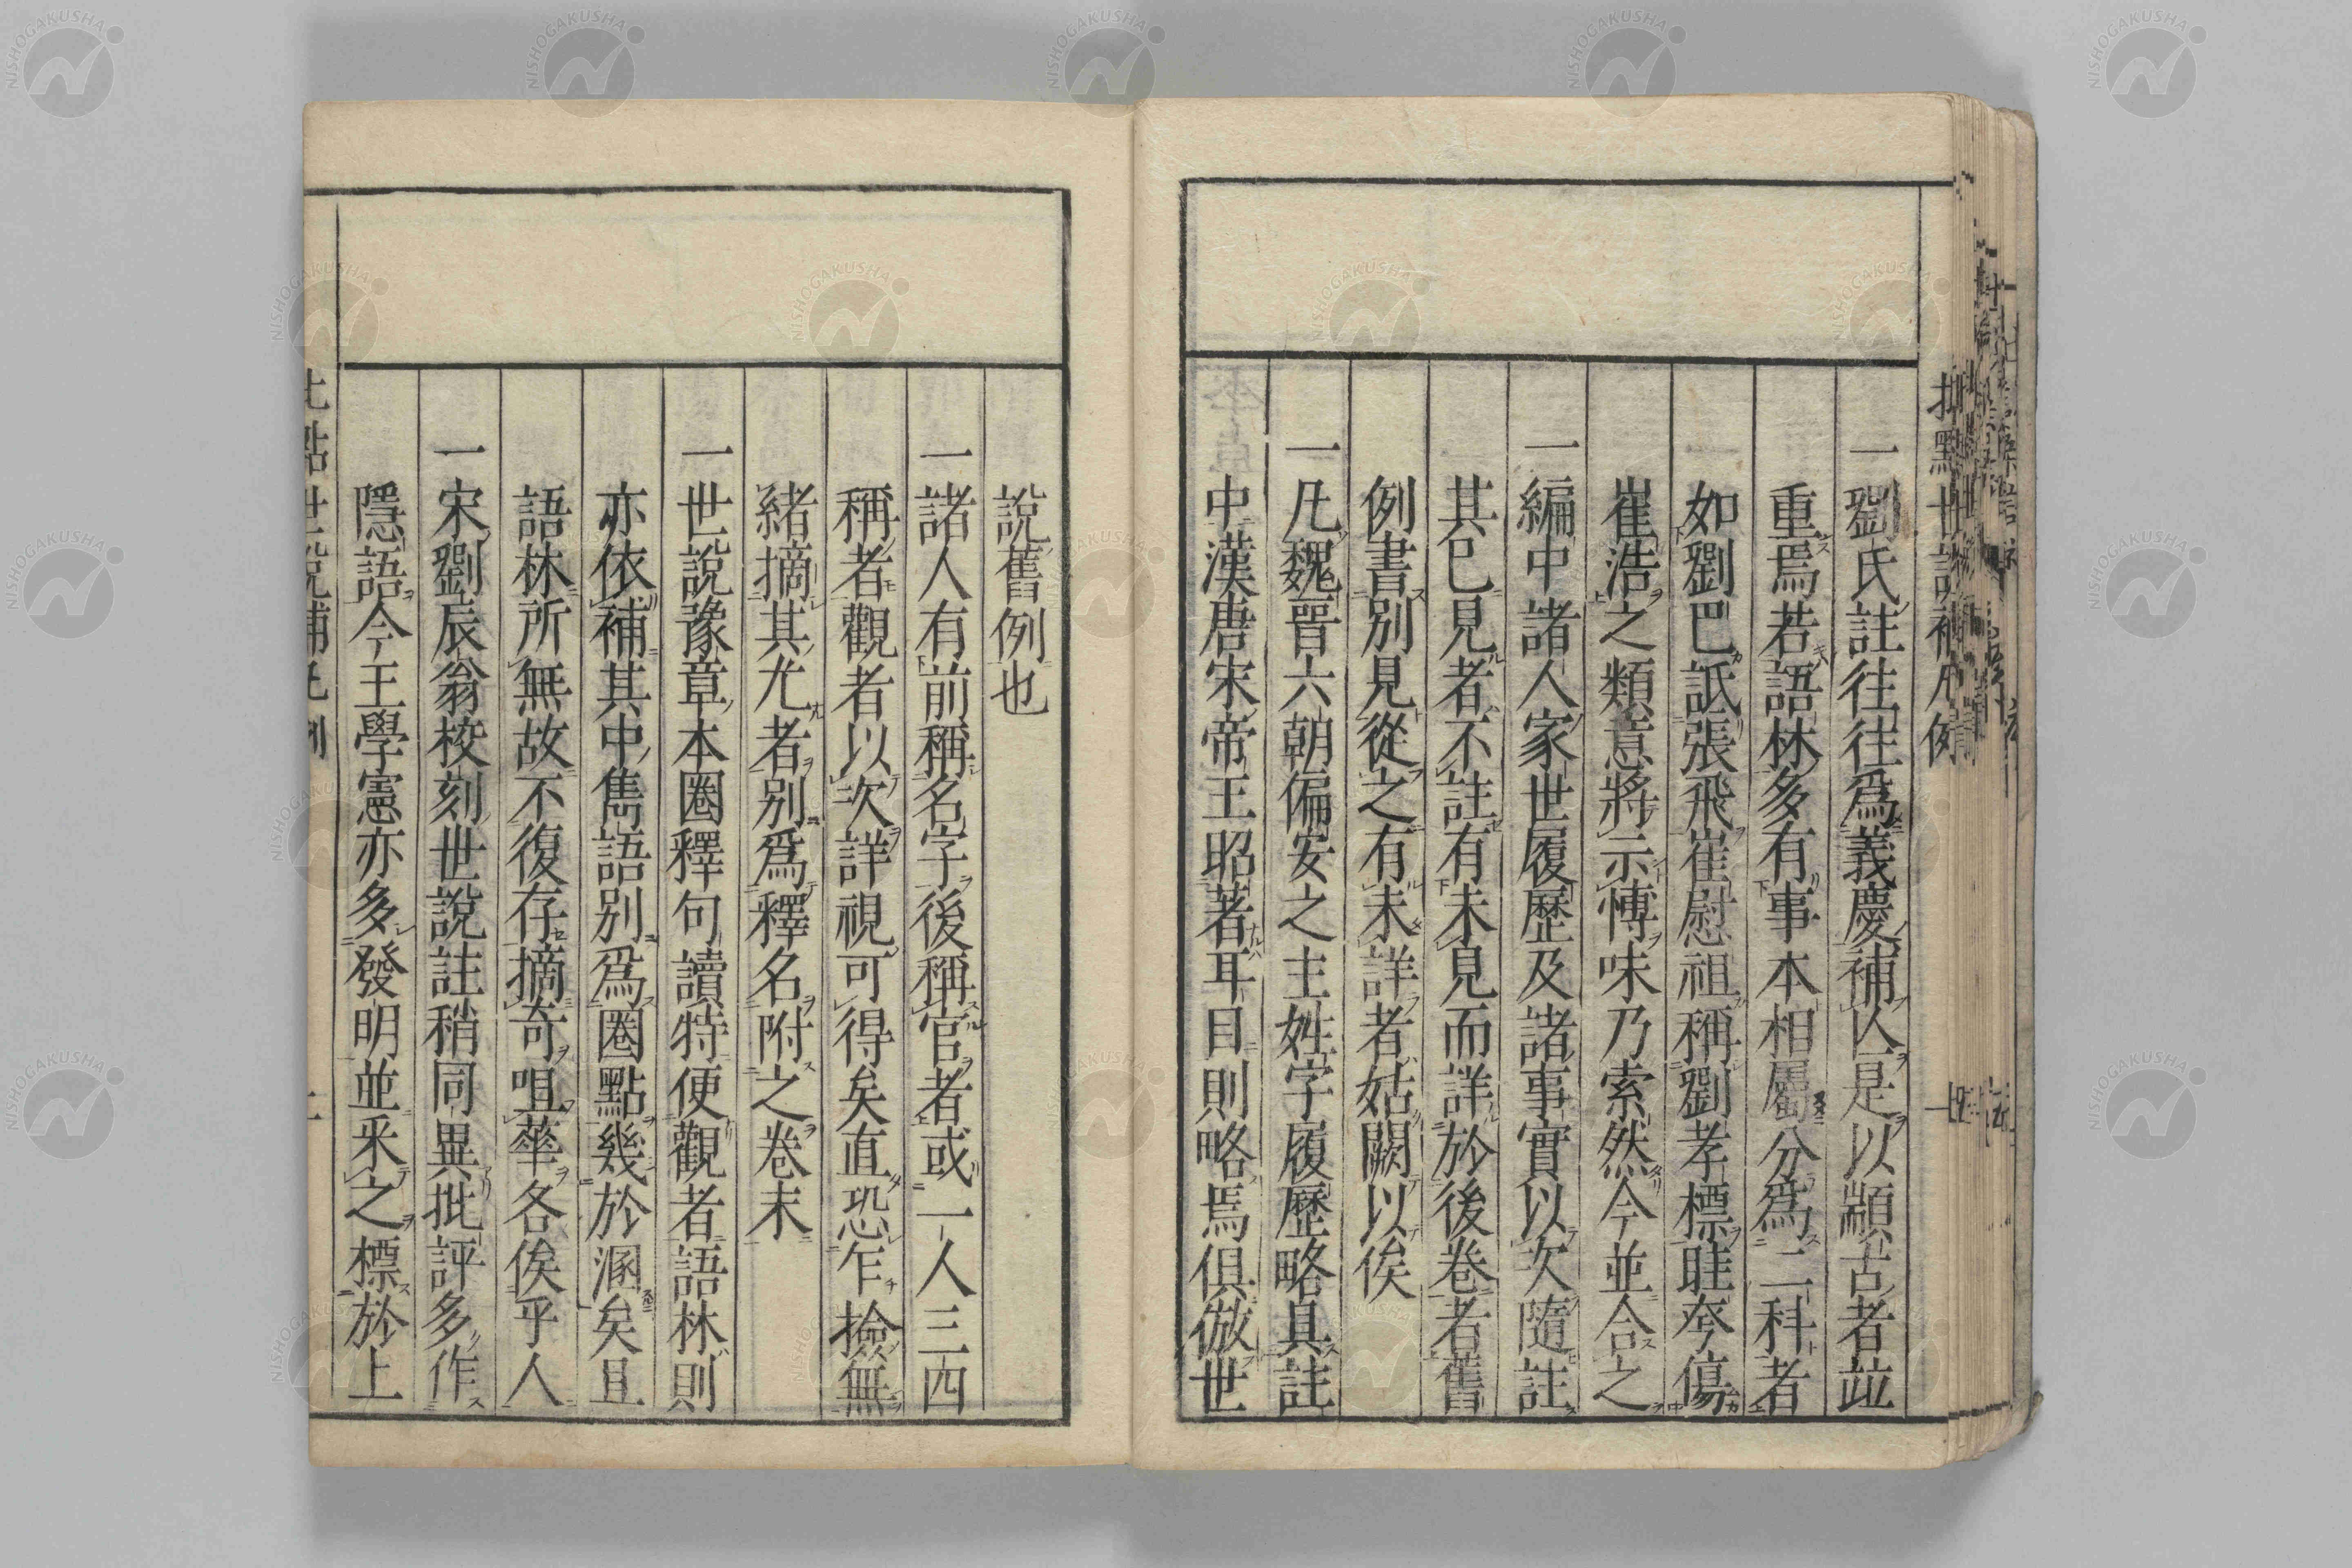 一劉氏註往往爲義慶補亾是以顓古者竝
重焉若語林多有事本相屬分爲二科者
如劉巴詆張飛崔慰祖稱劉孝標眭夸傷
崔浩之類意將示愽味乃索然今並合之
一編中諸人家世履歷及諸事實以次隨註
其巳見者不註有未見而詳於後卷者舊
例書別見從之有未詳者姑闕以俟
一凡魏晉六朝偏安之主姓字履歷略具註
中漢唐宋帝王昭著耳目則略焉俱倣世
說舊例也
一諸人有前稱名字後稱官者或一人三四
稱者觀者以次詳視可得矣直恐乍撿無
緒摘其尤者別爲釋名附之卷末
一世說豫章本圈釋句讀特便觀者語林則
亦依補其中雋語別爲圈點幾於溷矣且
語林所無故不復存摘奇咀華各俟乎人
一宋劉辰翁校刻世說註稍同異批評多作
隱語今王學憲亦多發明並采之標於上
批點世說補凡例
NISHOGAKUSHA